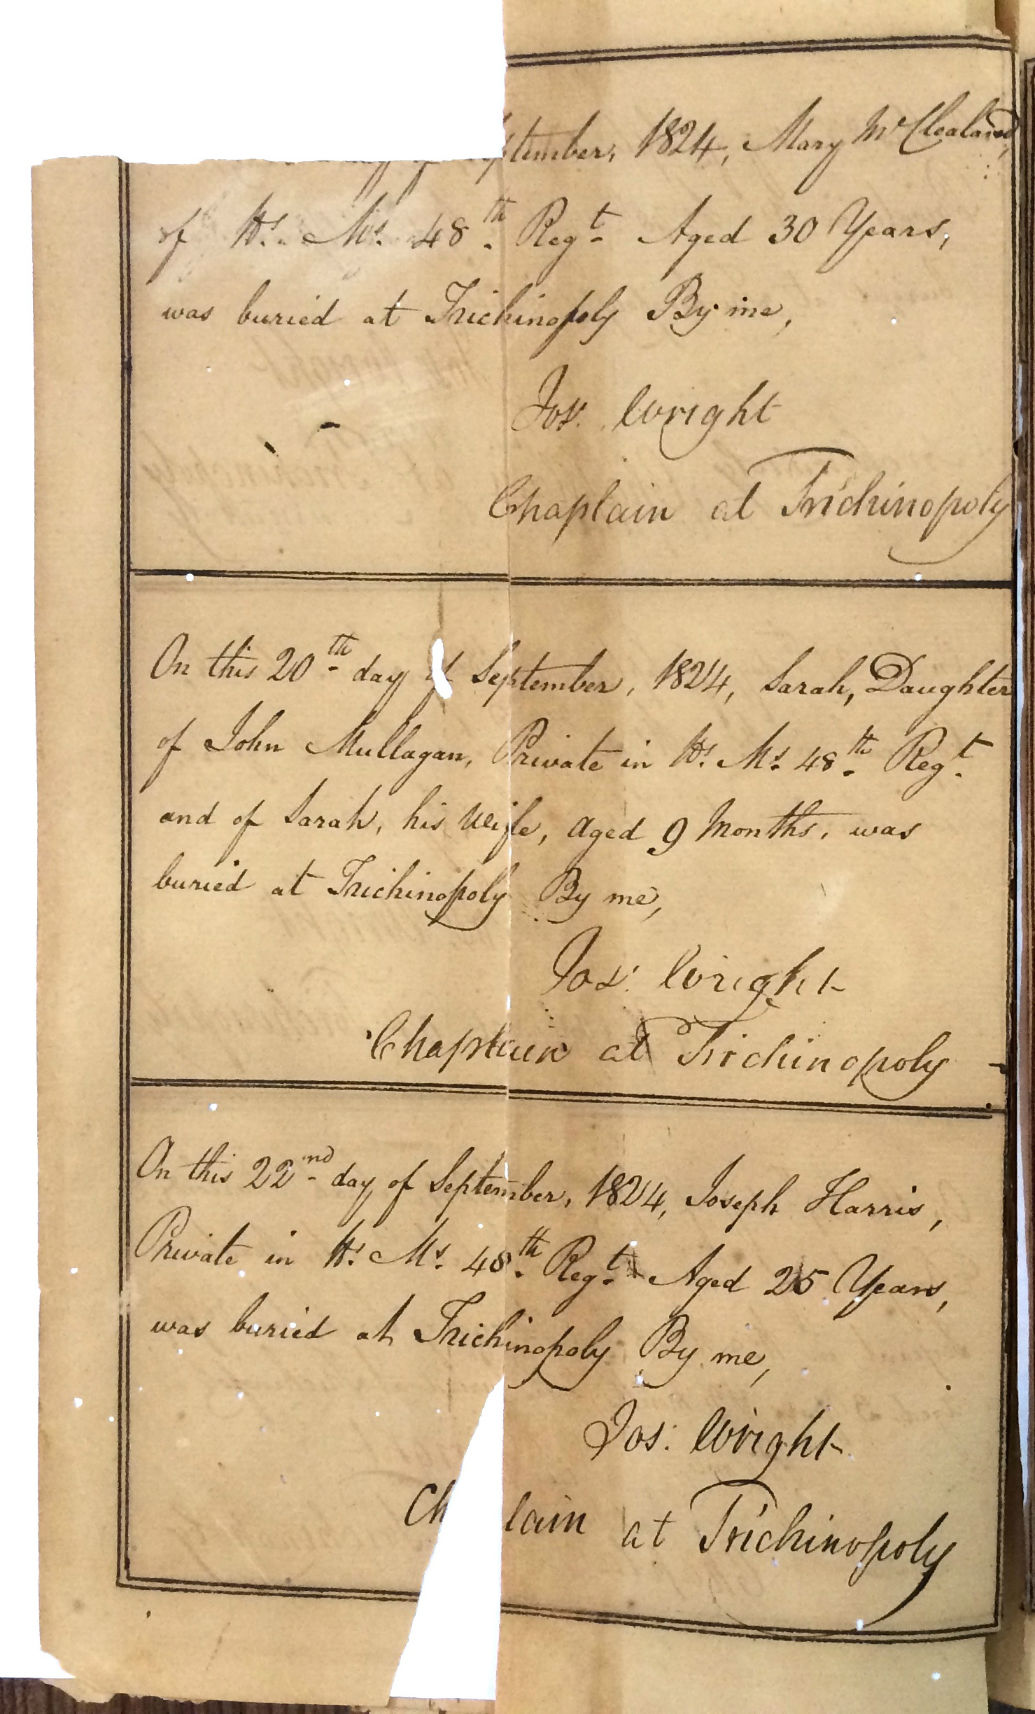 September, 1824, Mary McClealand,
of Hs. Ms. 48th Regt. Aged 30 Years,
was buried at Trichinopoly By me,
Jos. Wright
Chaplain at Trichinopoly
On this 20th day of September, 1824, Sarah, Daughter
of John Mullagan, Private in Hs. Ms. 48th Regt.
and of Sarah, his wife, aged 9 Months, was
buried at Trichinopoly By me,
Jos. Wright
Chaplain at Trichinopoly
On this 22nd day of September, 1824, Joseph Harris,
Private in Hs. Ms. 48th Regt. Aged 25 Years,
was buried at Trichinopoly By me,
Jos. Wright
Ch lain at Trichinopoly